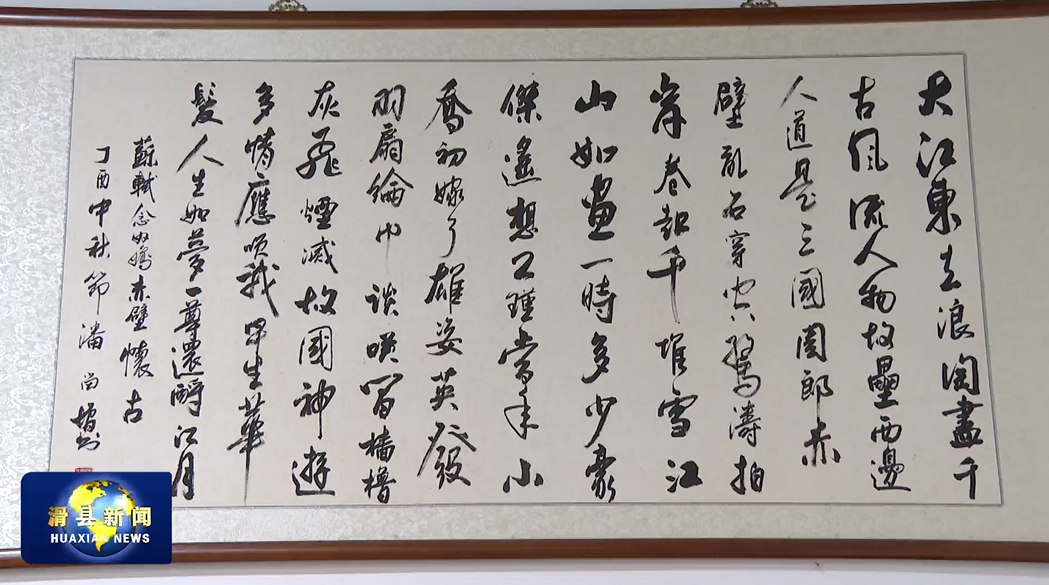 大江東去浪淘盡千
古風流人物故壘西邊
人道是三國周郎赤
壁亂石穿空驚濤拍
岸卷起千堆雪江
山如畫一時多少豪
傑遙想公瑾當年小
喬初嫁了雄姿英發
羽扇綸巾談咲間檣櫓
灰飛煙滅故國神遊
多情應咲我早生華
髮人生如夢一尊還酹江月
蘇軾念奴嬌赤壁懷古
丁酉中秋節潘尚
滑县新闻
HUAXIAN NEWS